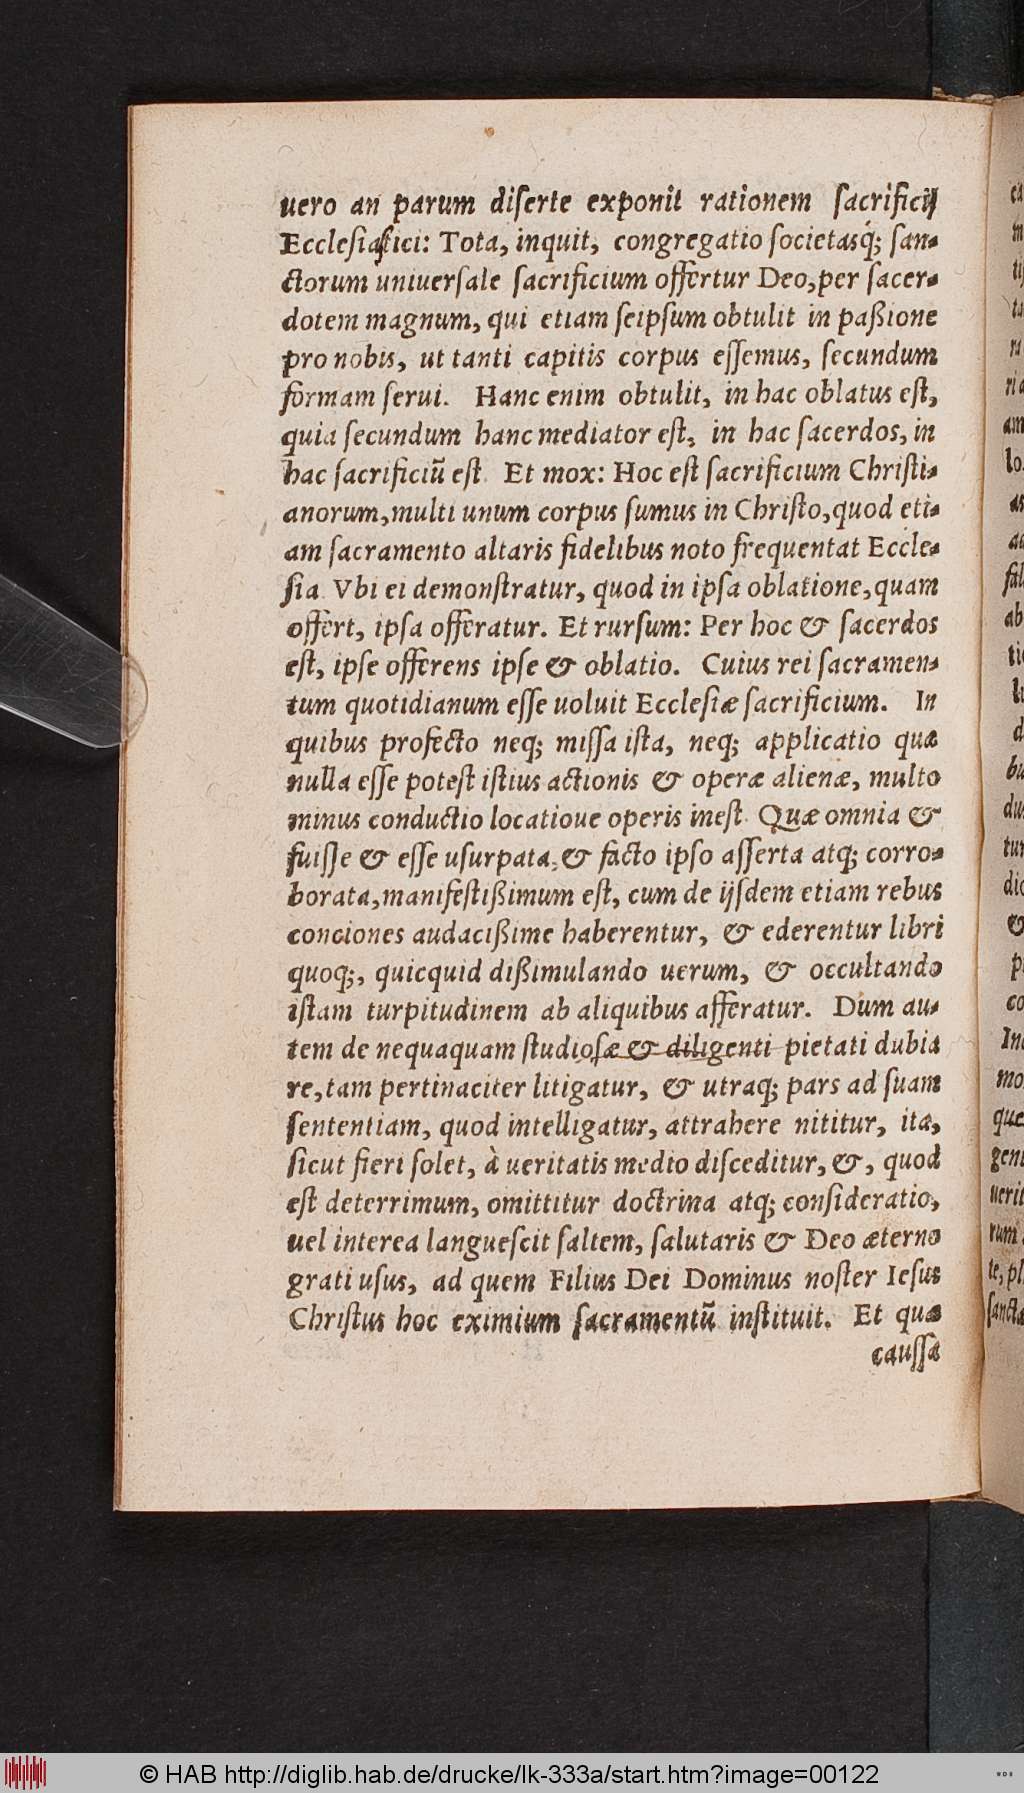 uero an parum diſerte exponit rationem ſacrificij
Eccleſiaſtici: Tota, inquit, congregatio ſocietasq́; ſan-
ctorum uniuerſale ſacrificium offertur Deo, per ſacer-
dotem magnum, qui etiam ſeipſum obtulit in paßione
pro nobis, ut tanti capitis corpus eſſemus, ſecundum
formam ſerui. Hanc enim obtulit, in hac oblatus eſt,
quia ſecundum hanc mediator eſt, in hac ſacerdos, in
hac ſacrificiũ eſt. Et mox: Hoc eſt ſacrificium Chriſti-
anorum, multi unum corpus ſumus in Chriſto, quod eti-
am ſacramento altaris fidelibus noto frequentat Eccle-
ſia. Vbi ei demonſtratur, quod in ipſa oblatione, quam
offert, ipſa offeratur. Et rurſum: Per hoc & ſacerdos
eſt, ipſe offerens ipſe & oblatio. Cuius rei ſacramen-
tum quotidianum eſſe uoluit Eccleſiæ ſacrificium. In
quibus profecto neq; miſſa iſta, neq; applicatio quæ
nulla eſſe poteſt iſtius actionis & operæ alienæ, multo
minus conductio locatioue operis ineſt. Quæ omnia &
fuiſſe & eſſe uſurpata, & facto ipſo aſſerta atq; corro-
borata, manifeſtißimum eſt, cum de ijſdem etiam rebus
conciones audacißime haberentur, & ederentur libri
quoq;, quicquid dißimulando uerum, & occultando
iſtam turpitudinem ab aliquibus afferatur. Dum au-
tem de nequaquam ſtudioſæ & diligenti pietati dubia
re, tam pertinaciter litigatur, & utraq; pars ad ſuam
ſententiam, quod intelligatur, attrahere nititur, ita,
ſicut fieri ſolet, à ueritatis medio diſceditur, &, quod
eſt deterrimum, omittitur doctrina atq; conſideratio,
uel interea langueſcit ſaltem, ſalutaris & Deo æterno
grati uſus, ad quem Filius Dei Dominus noſter Ieſus
Chriſtus hoc eximium ſacramentũ inſtituit. Et quæ
cauſſa
© HAB http://diglib.hab.de/drucke/lk-333a/start.htm?image=00122